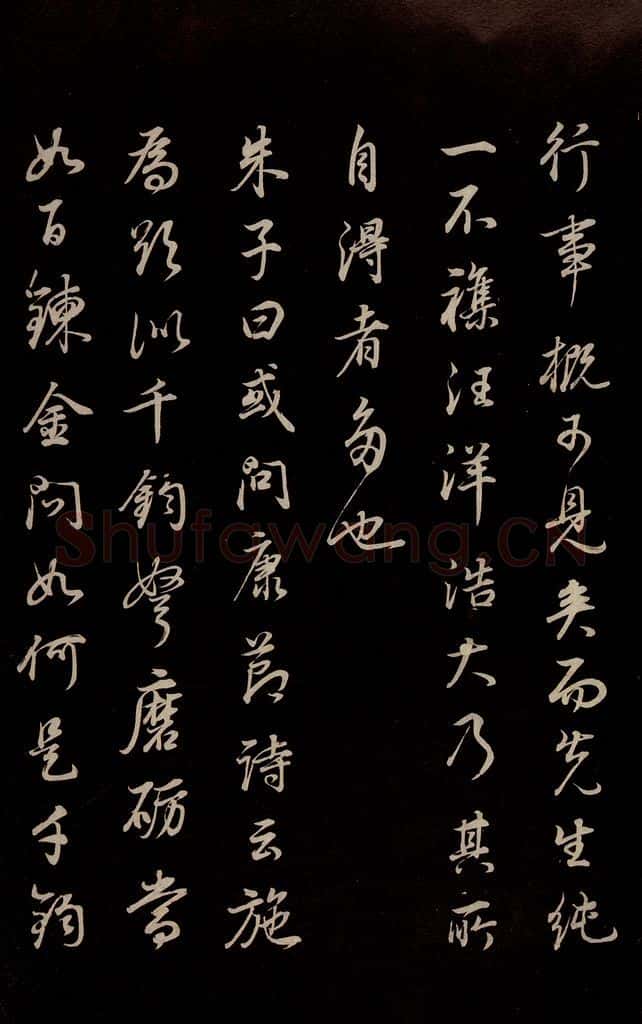 行事概可見矣而先生純
一不襍汪洋浩大乃其所
自得者多也
朱子曰或問康節詩云施
為欲似千鈞弩磨礪當
如百鍊金問如何是千鈞
Shufawang.CN